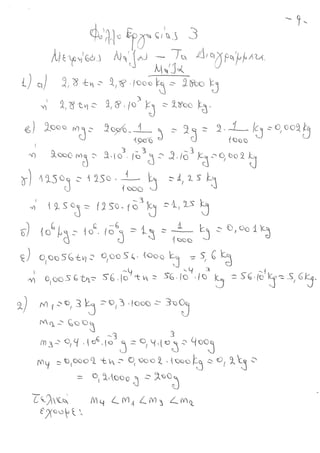 -9-
Φύλλο Εργασίας 3
Μετρήσεις Μάζας - Τα Διαγράμματα
Μάζα
1) α) 2,8 tn = 2,8·1000 kg = 2800 kg
ή 2,8 tn = 2,8·10³ kg = 2800 kg.
β) 2000 mg = 2000·1/1000 g = 2g = 2·1/1000 kg = 0,002 kg
ή 2000 mg = 2·10³·10⁻³ g = 2·10⁻³ kg = 0,002 kg
γ) 1250g = 1250·1/1000 kg = 1,25 kg
ή 1250g = 1250·10⁻³ kg = 1,25 kg
δ) 10⁶ μg = 10⁶·10⁻⁶ g = 1g = 1/1000 kg = 0,001 kg
ε) 0,0056 tn = 0,0056·1000 kg = 5,6 kg
ή 0,0056 tn = 56·10⁻⁴ tn = 56·10⁻⁴·10³ kg = 56·10⁻¹ kg = 5,6 kg.
2) m₁ = 0,3 kg = 0,3·1000 = 300g
m₂ = 600g
m₃ = 0,4·10⁶·10⁻³ g = 0,4·10³ g = 400g
m₄ = 0,0002 tn = 0,0002·1000 kg = 0,2 kg =
= 0,2·1000 g = 200g
Τελικά m₄ < m₁ < m₃ < m₂
έχουμε: